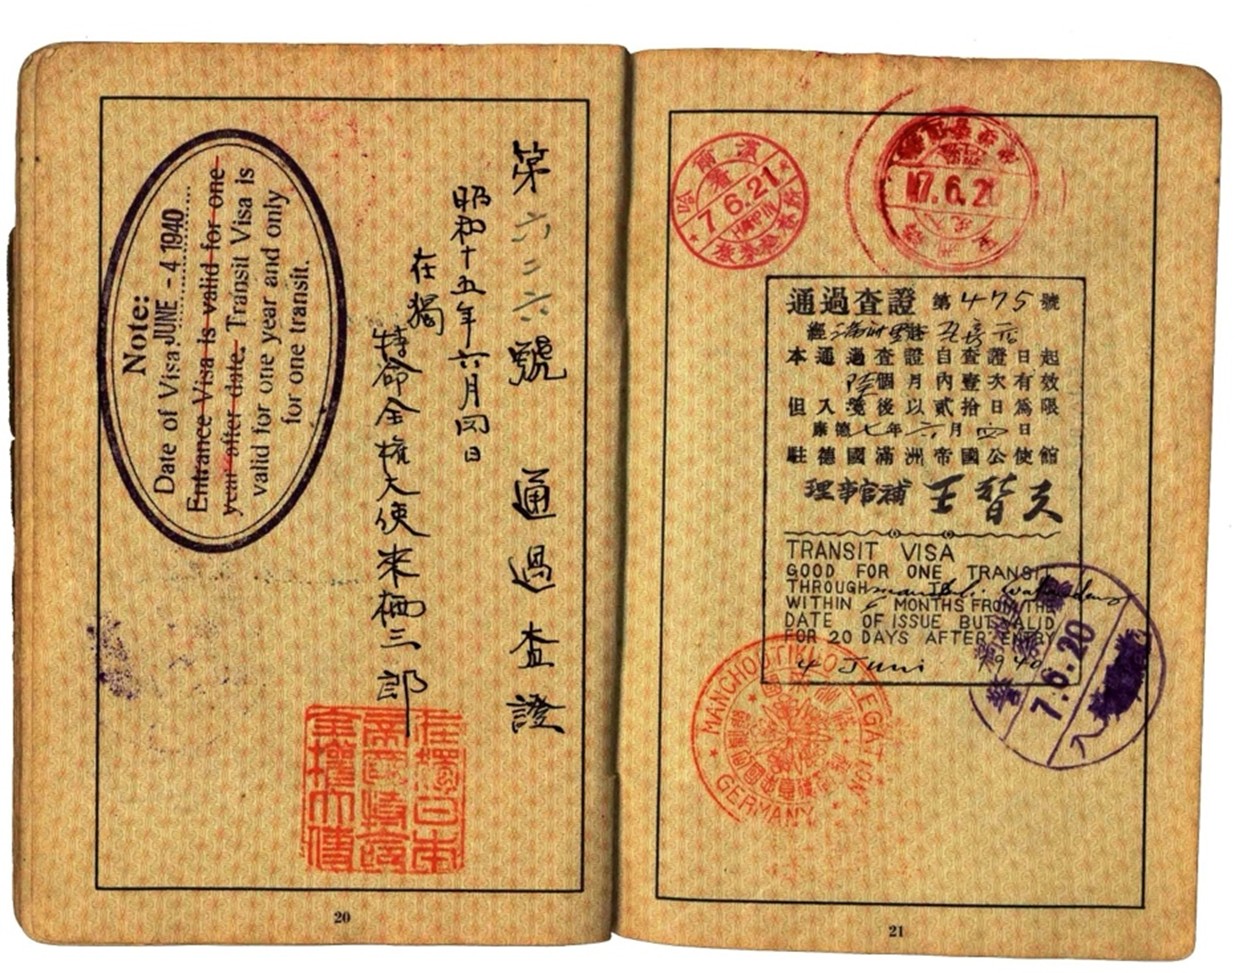 Note:
Date of Visa JUNE - 4 1940
Entrance Visa is valid for one
year after date. Transit Visa is
valid for one year and only
for one transit.
第六二六號 通過査證
昭和十五年六月四日
在獨
特命全權大使來栖三郎
20
哈爾濱
7.6.21
HARPIN
7.6.21
通過査證 第475號
經滿洲里
本通過査證自査證日起
陸個月內壹次有效
但入境後以貳拾日爲限
康德七年六月四日
駐德國滿洲帝國公使館
理事官補 王替夫
TRANSIT VISA
GOOD FOR ONE TRANSIT
THROUGH
WITHIN 6 MONTHS FROM THE
DATE OF ISSUE BUT VALID
FOR 20 DAYS AFTER ENTRY
4 Juni 1940
7.6.20
MANCHOUTIKUO LEGATION
GERMANY
21